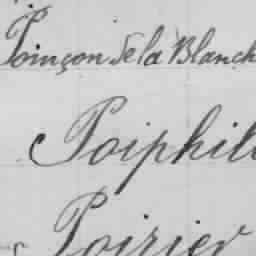 Poinçon de la Blanch
Poiphil
Poirier